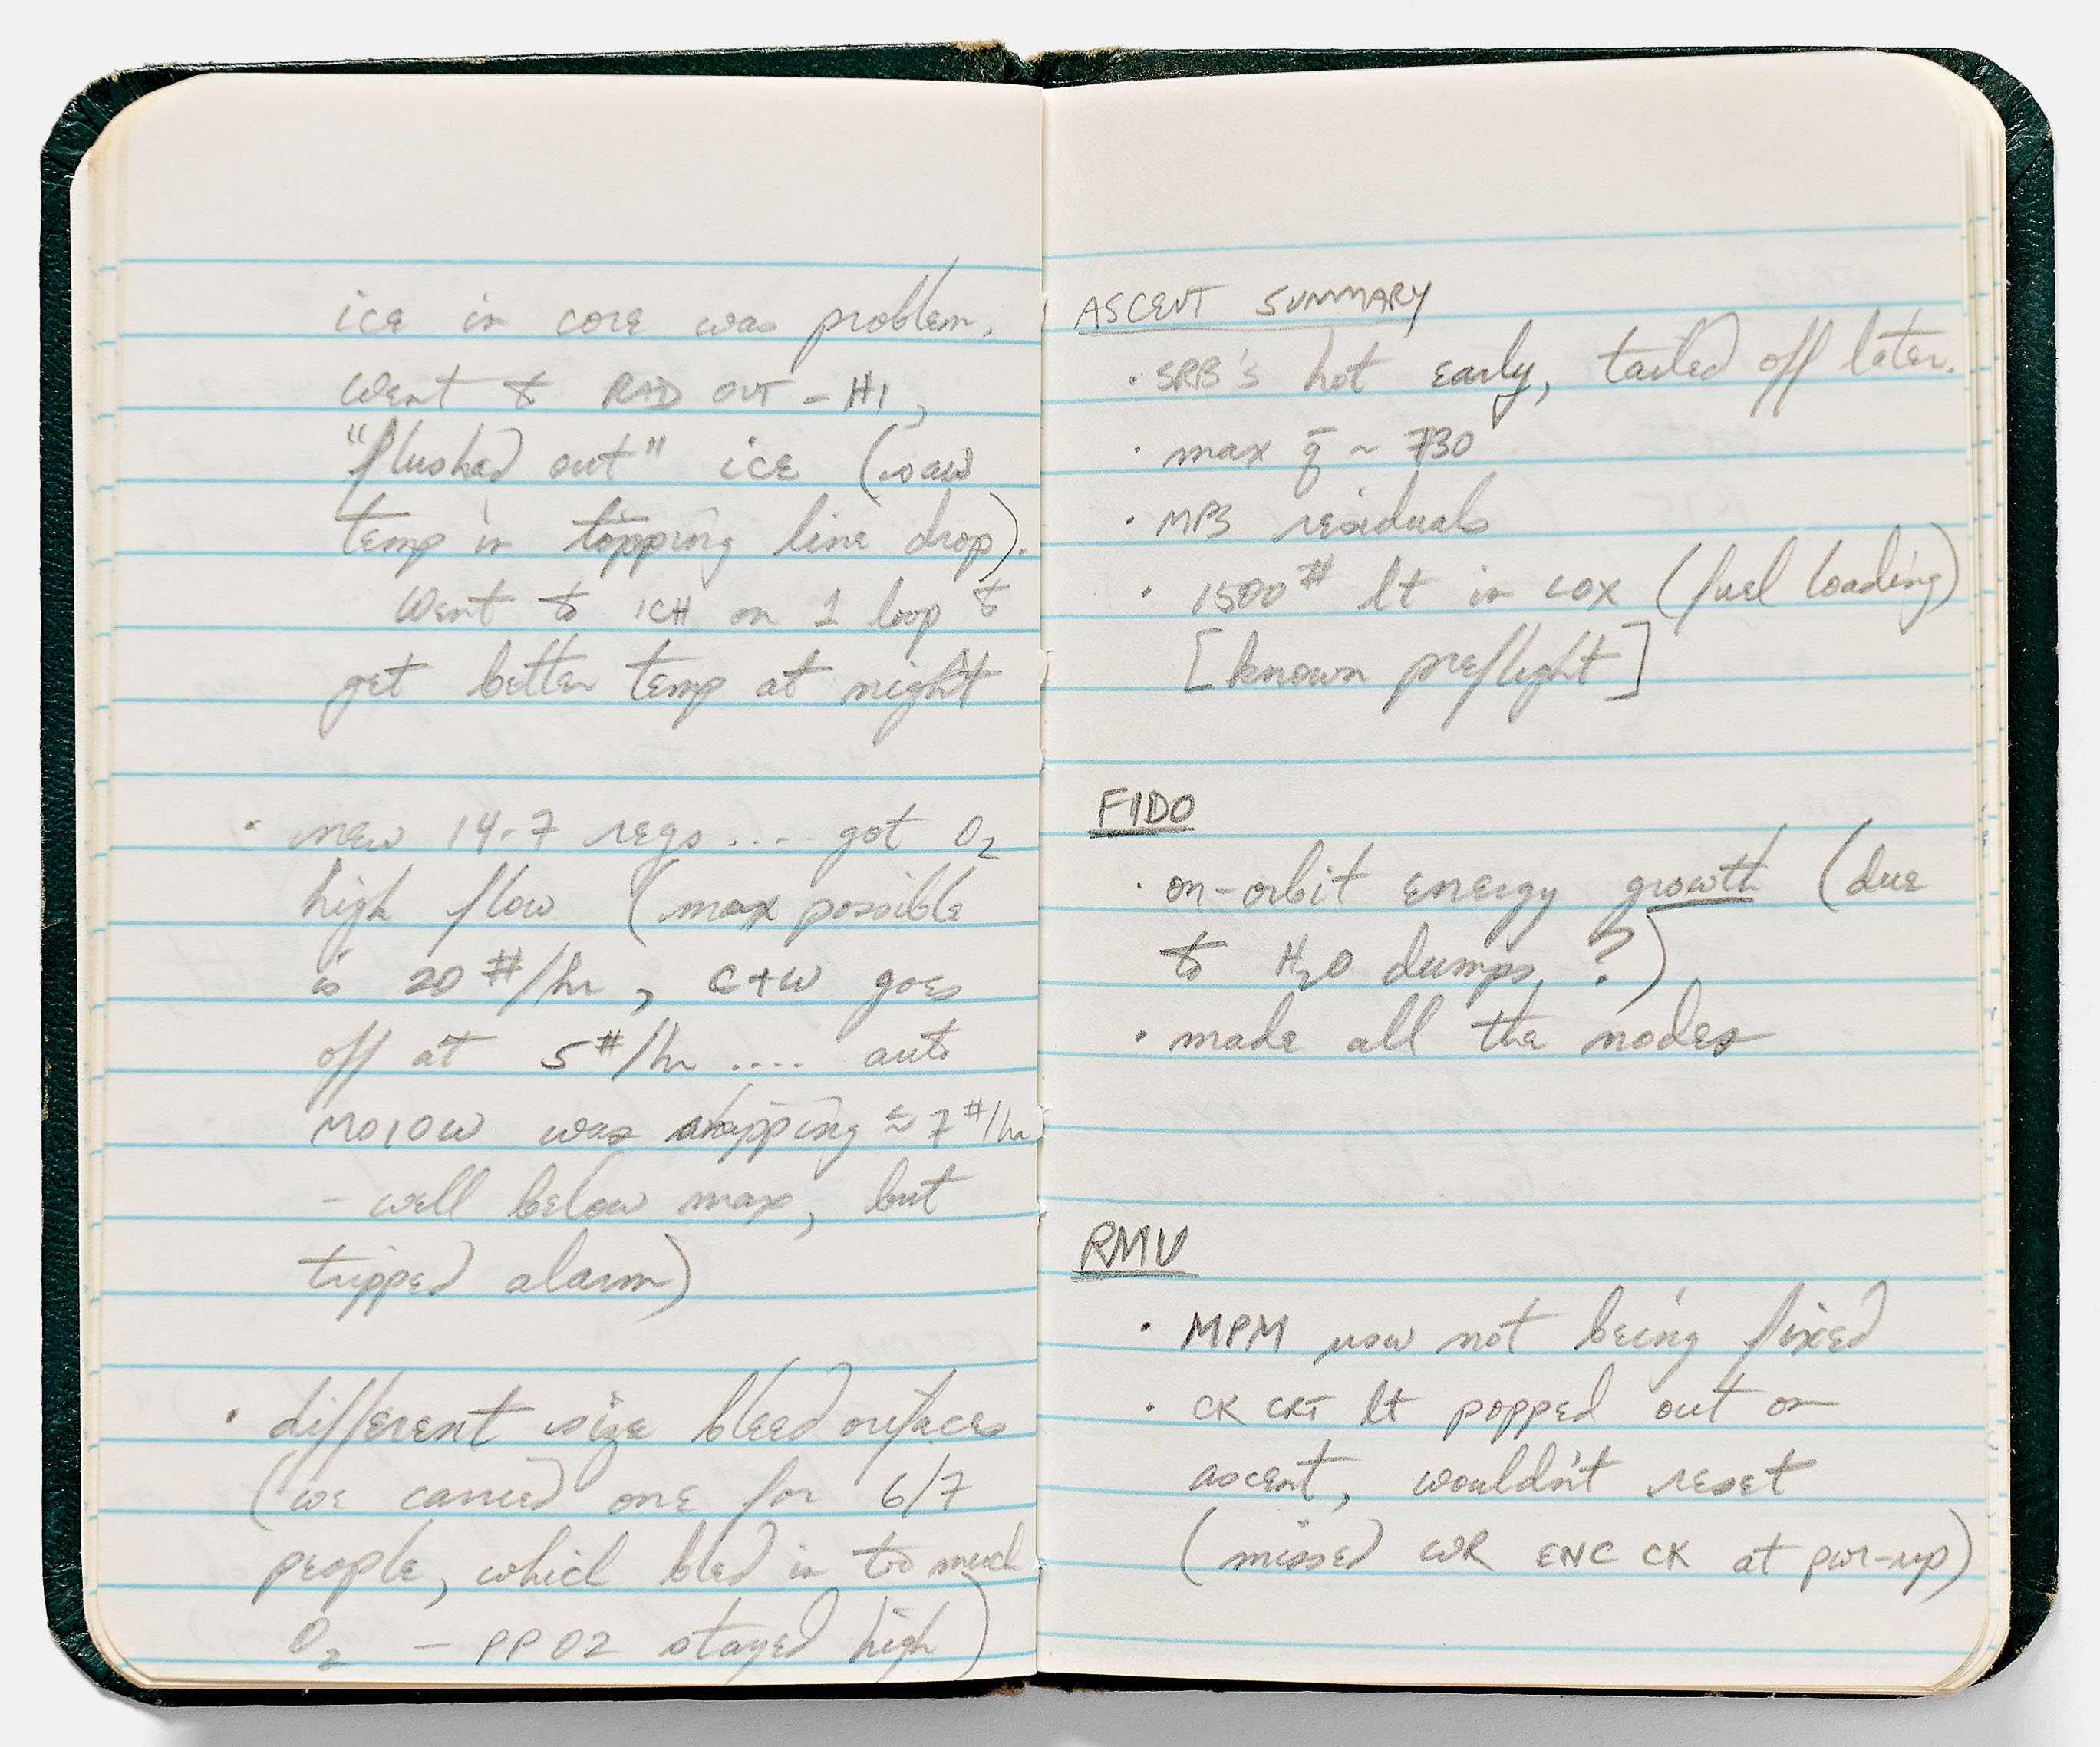 ice in core was problem.
Went to RAD OUT - HI,
"flushed out" ice (saw
temp in topping line drop).
Went to ICH on 1 loop to
get better temp at night
• new 14.7 regs .... got O2
high flow (max possible
is 20 #/hr, C+W goes
off at 5#/hr .... auto
was ≈ 7 #/hr
- well below max, but
tripped alarm)
• different size bleed orifaces
(we carried one for 6/7
people, which bled in too much
O2 - PPO2 stayed high)
ASCENT SUMMARY
• SRB's hot early, tailed off later.
• max q̄ ~ 730
• MPS residuals
• 1500# lt in LOX (fuel loading)
[known preflight]
FIDO
• on-orbit energy growth (due
to H2O dumps ?)
• made all the nodes
RMU
• MPM usw not being fixed
• CK CRT lt popped out on
ascent, wouldn't reset
(missed WR ENC CK at pwr-up)